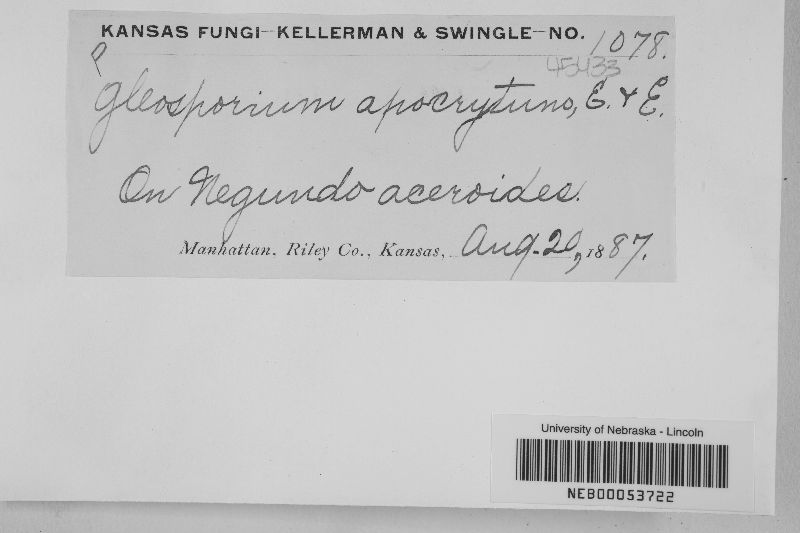 KANSAS FUNGI—KELLERMAN & SWINGLE—NO. 1078.
45433
Gleosporium apocrytuno, E. & E.
On Negundo aceroides.
Manhattan, Riley Co., Kansas, Aug. 20, 1887.
University of Nebraska - Lincoln
NEB00053722